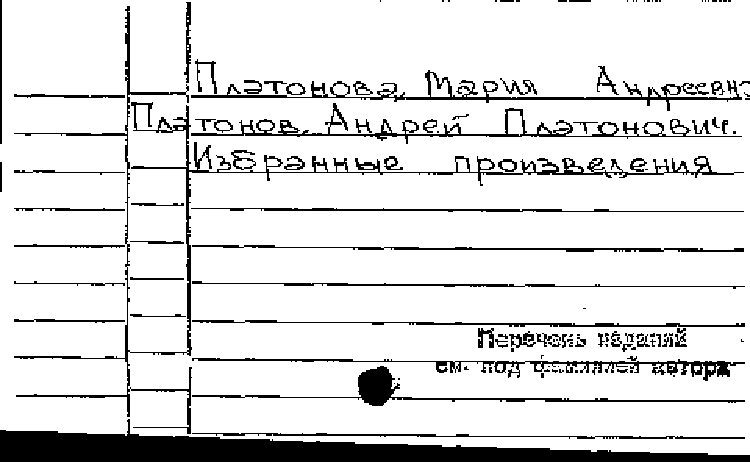 Платонова, Мария Андреевна
Платонов, Андрей Платонович.
Избранные произведения
Перечень изданий
см. под фамилией автора